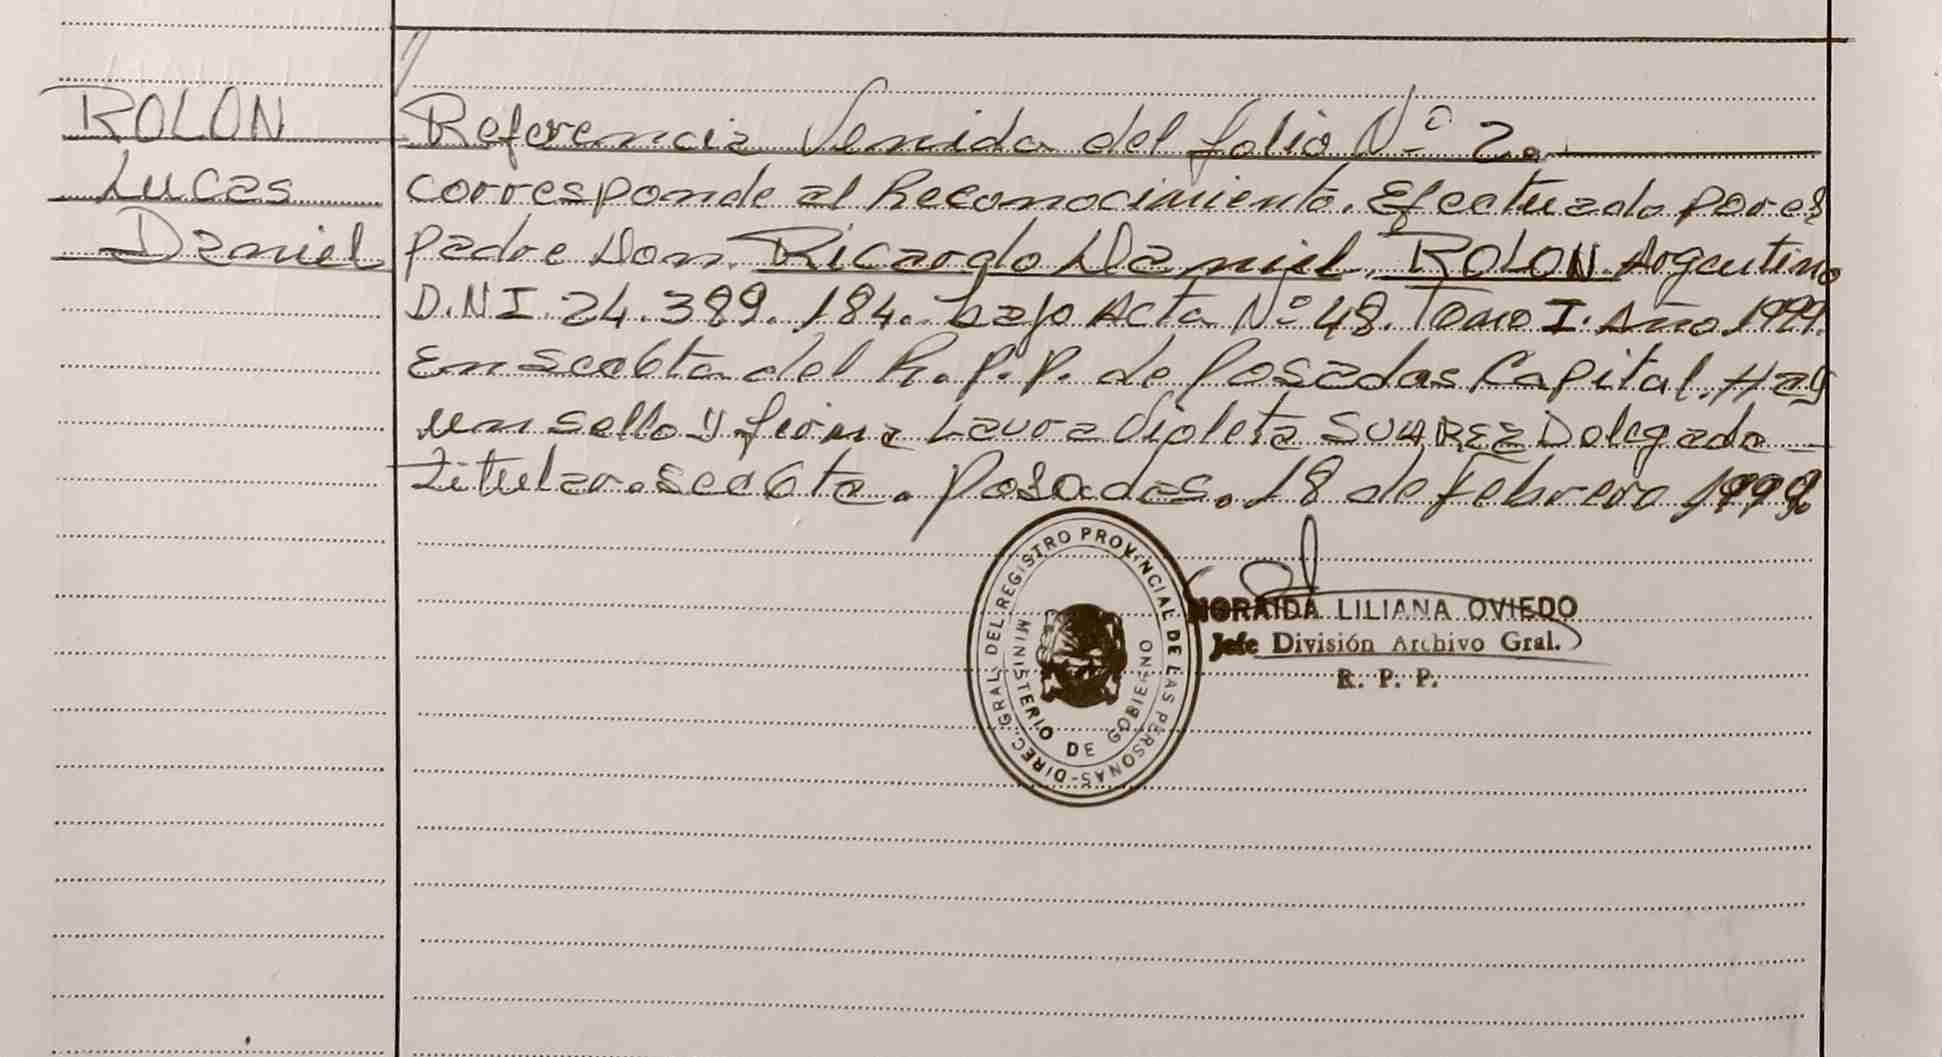 ROLON
Lucas
Daniel
Referencia Venida del folio Nº 2.
corresponde al Reconocimiento. Efectuado por el
padre Don. Ricardo Daniel, ROLON. Argentino
D.N.I. 24.389.184. bajo Acta Nº 48. Tomo I. Año 1999.
En secc 6ta del R.P.P. de Posadas Capital. Hay
un sello y firma Laura Violeta SUAREZ Delegada
titular. secc 6ta. Posadas. 18 de Febrero 1999.
DIREC. GRAL. DEL REGISTRO PROVINCIAL DE LAS PERSONAS
MINISTERIO DE GOBIERNO
NORAIDA LILIANA OVIEDO
Jefe División Archivo Gral.
R. P. P.